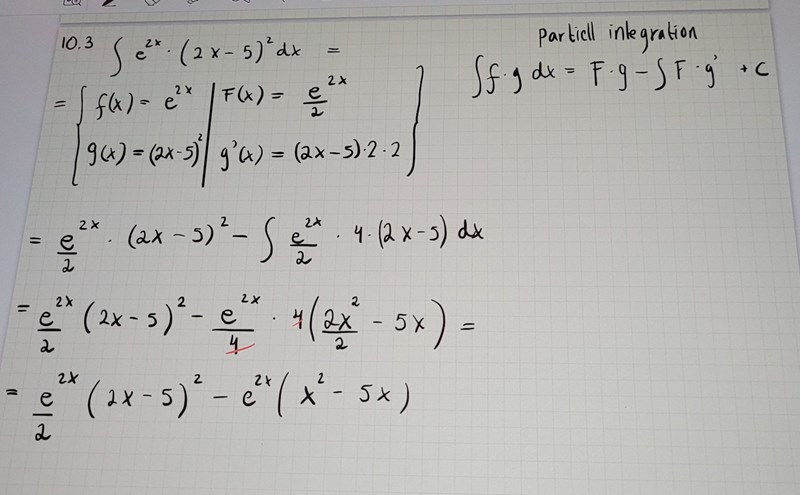 10.3 ∫ e^{2x} · (2x − 5)² dx =
Partiell integration
∫f·g dx = F·g − ∫F·g' + C
= { f(x) = e^{2x} | F(x) = e^{2x}/2
g(x) = (2x-5)² | g'(x) = (2x−5)·2·2 }
= e^{2x}/2 · (2x − 5)² − ∫ e^{2x}/2 · 4·(2x−5) dx
= e^{2x}/2 (2x − 5)² − e^{2x}/4 · 4(2x²/2 − 5x) =
= e^{2x}/2 (2x − 5)² − e^{2x}(x² − 5x)